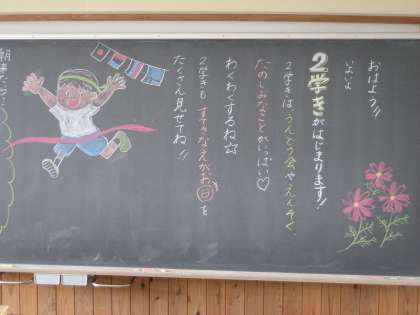 おはよう!!
いよいよ
2学きがはじまります!
2学きは うんどう会や えんそく、
たのしみなことが いっぱい♡
わくわくするね☆
2学きも すてきなえがお を
たくさん見せてね!!
朝来たら…